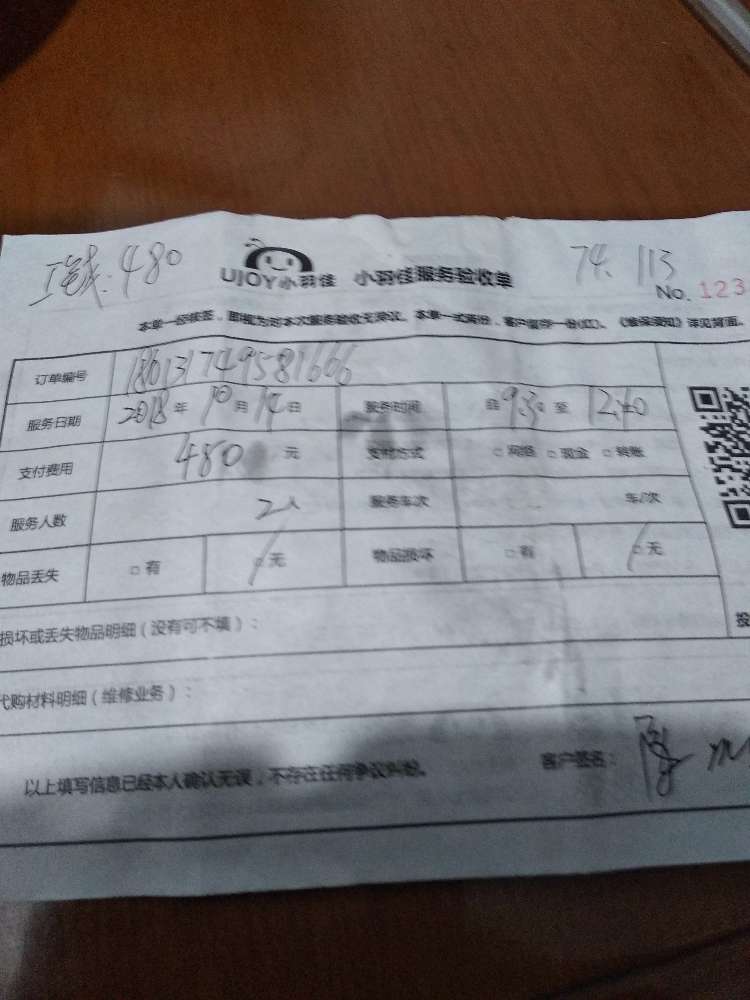 工钱:480
UJOY小羽佳 小羽佳服务验收单
74. 113
No. 123
本单一经签,即视为对本次服务验收无异议。本单一式两份,客户留存一份(红)。《维保须知》详见背面。
订单编号
服务日期 2018年10月14日 服务时间 自9:30至12:40
支付费用 480 元 支付方式 □网络 □现金 □转账
服务人数 2人 服务车次 车/次
物品丢失 □有 □无 物品损坏 □有 □无
损坏或丢失物品明细(没有可不填):
代购材料明细(维修业务):
以上填写信息已经本人确认无误,不存在任何争议纠纷。
客户签名:
投